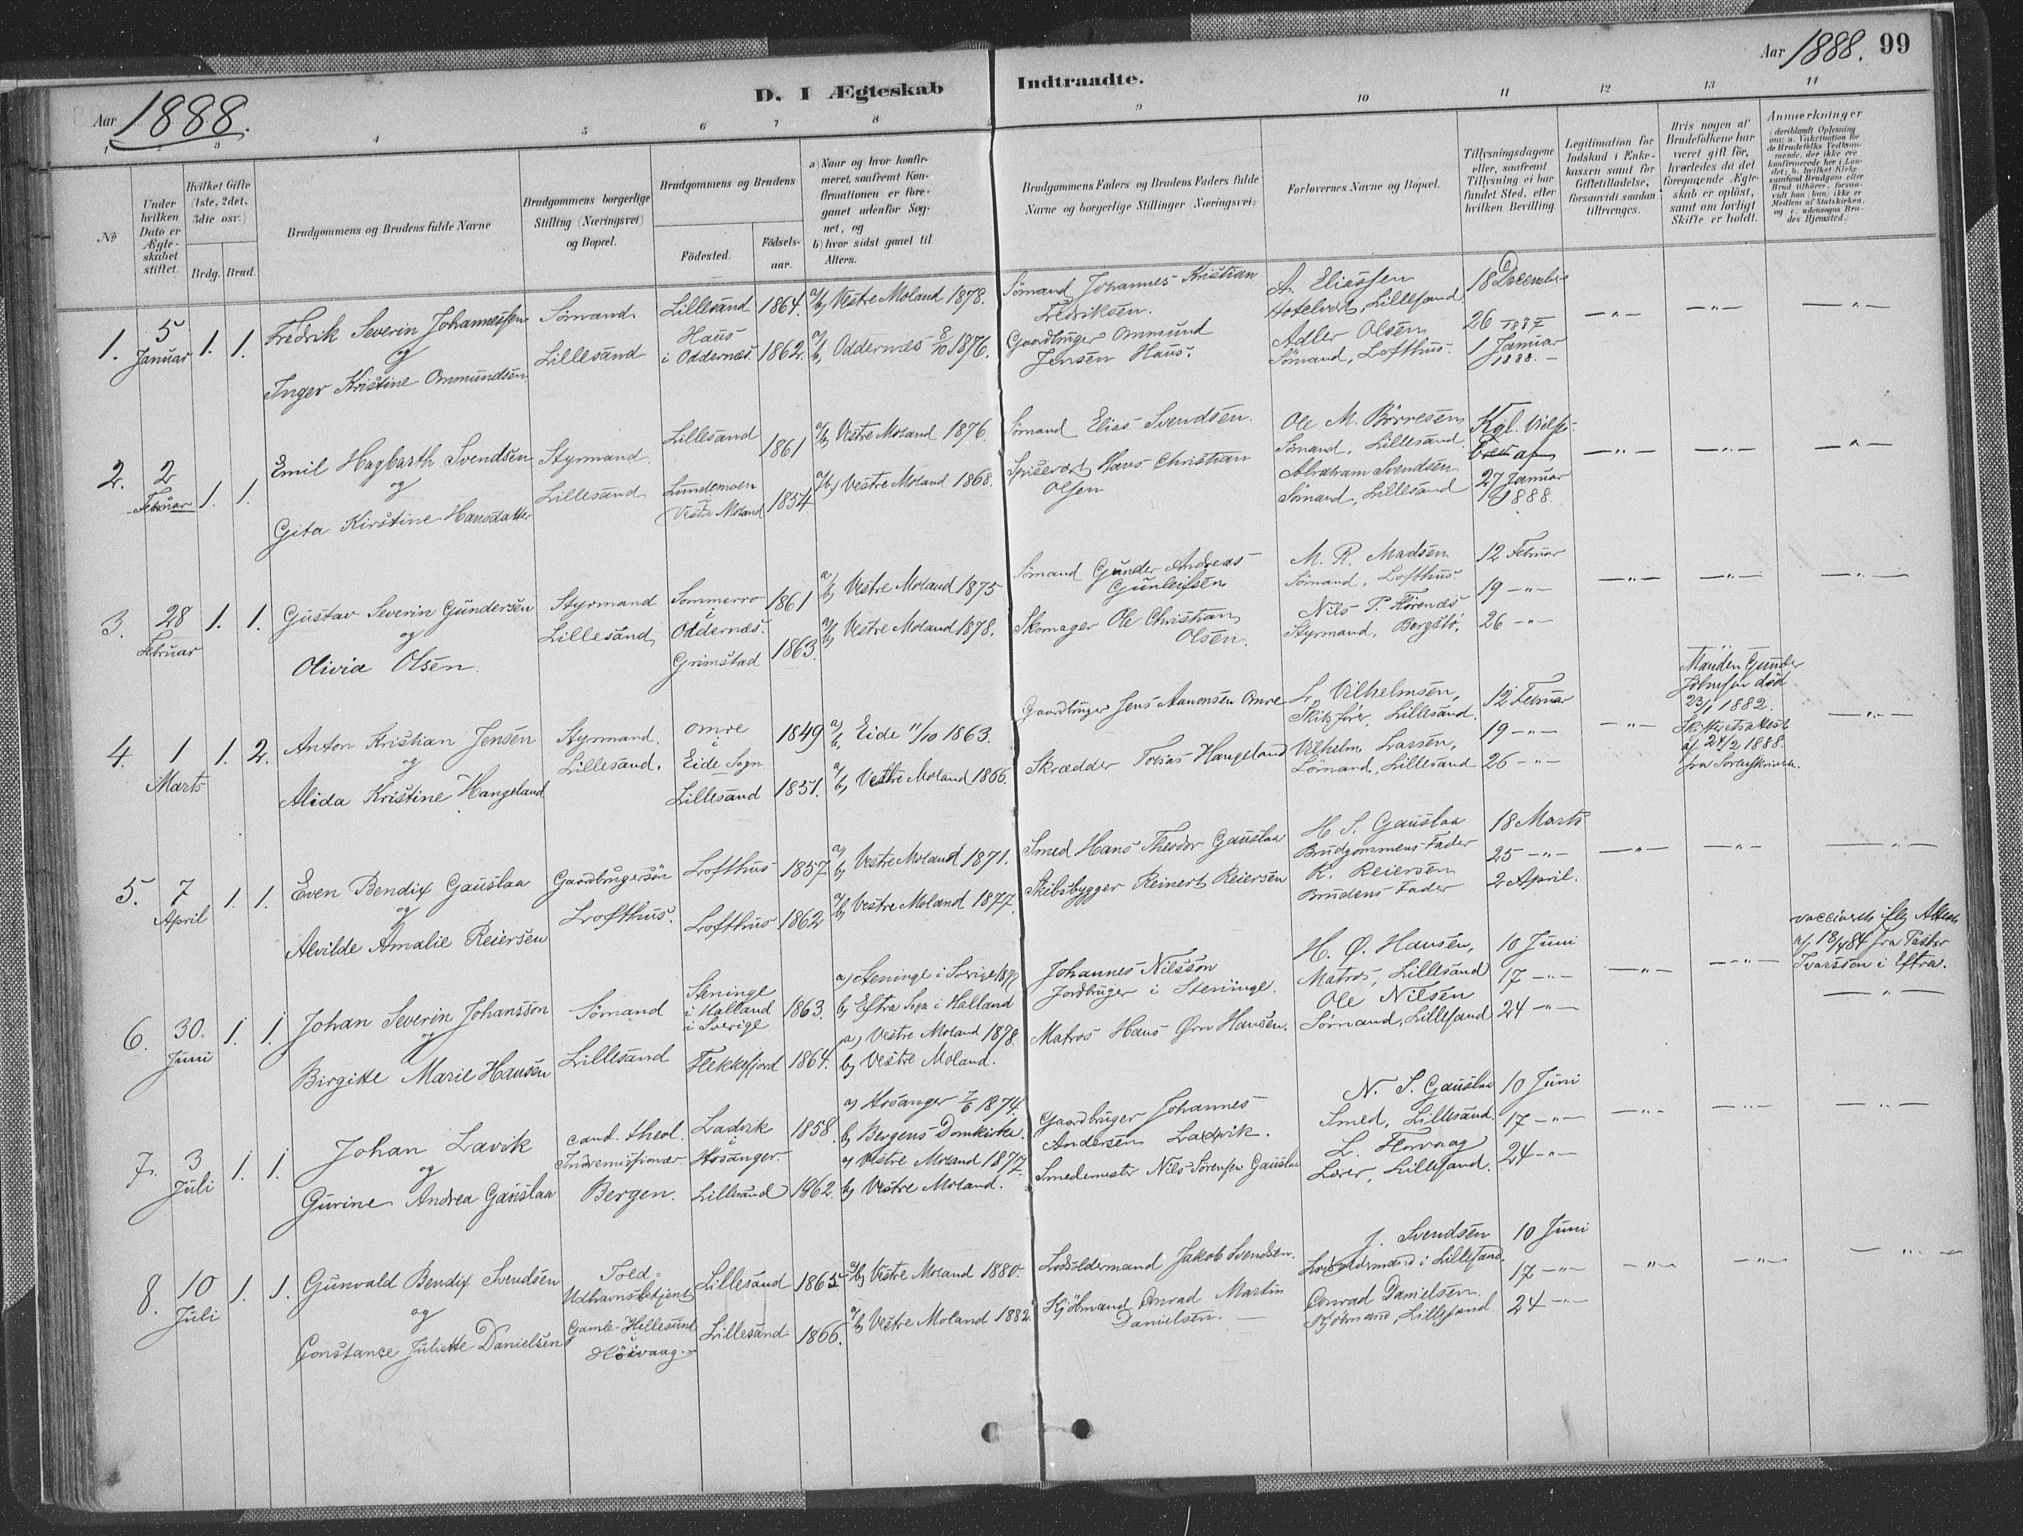 Aar 1888.
D. I Ægteskab Indtraadte.
Aar 1888. 99
1 2 3 4 5 6 7 8 9 10 11 12 13 14
No
Under hvilken Dato er Ægteskabet stiftet.
Hvilket Gifte (1ste, 2det, 3dte osv.)
Brdg. Brud.
Brudgommens og Brudens fulde Navne
Brudgommens borgerlige Stilling (Næringsvei) og Bopæl.
Brudgommens og Brudens
Födested.
Födsels-aar.
a) Naar og hvor konfirmeret, saafremt Konfirmationen er foregaaet udenfor Sognet, og
b) hvor sidst gaaet til Alters.
Brudgommens Faders og Brudens Faders fulde Navne og borgerlige Stillinger (Næringsvei)
Forlovernes Navne og Bopæl.
Tillysningsdagene eller, saafremt Tillysning ei har fundet Sted, efter hvilken Bevilling.
Legitimation for Indskud i Enkekassen samt for Giftetilladelse, forsaavidt saadan tiltrænges.
Hvis nogen af Brudefolkene har været gift för, hvorledes da det foregaaende Ægteskab er oplöst, samt om lovligt Skifte er holdt.
Anmerkninger
1. 5 Januar 1. 1.
Fredrik Severin Johannessen
og
Inger Kristine Ommundsen
Sömand
Lillesand
Lillesand 1864.
Haus i Oddernæs. 1862.
a/b) Vestre Moland 1878.
a/b) Oddernæs 8/10 1876.
Sömand Johannes Kristian Fredriksen.
Gaardbruger Ommund Jensen Haus.
A. Eliassen
Hotelvert, Lillesand
Adler Olsen
Sömand, Lofthus.
18 December
26 1887
1 Januar 1888.
2. 2 Februar 1. 1.
Emil Hagbarth Svendsen
og
Gita Kirstine Hansdatter
Styrmand
Lillesand
Lillesand 1861
Lundemoen Vestre Moland 1854
a/b) Vestre Moland 1876.
a/b) Vestre Moland 1868.
Sömand Elias Svendsen.
Spisevert Hans Christian Olsen
Ole M. Börresen
Sömand, Lillesand.
Abraham Svendsen
Sömand, Lillesand
Kgl. Vielsesbrev af
27 Januar 1888.
3. 28 Februar 1. 1.
Gustav Severin Gundersen
og
Olivia Olsen.
Styrmand
Lillesand
Sommerro i Oddernæs. 1861
Grimstad 1863.
a/b) Vestre Moland 1875
a/b) Vestre Moland 1878.
Sömand Gunder Andreas Gunleifsen
Skomager Ole Christian Olsen.
M. R. Madsen
Sömand, Lofthus.
Nils P. Förenæs
Styrmand, Bergstö.
12 Februar
19 -"-
26 -"-
4. 1 Marts 1. 2.
Anton Kristian Jensen
og
Alida Kristine Hangeland
Styrmand.
Lillesand.
Omre i Eide Sogn 1849
Lillesand 1851.
a/b) Eide 11/10 1863.
a/b) Vestre Moland 1866.
Gaardbruger Jens Aanonsen Omre
Skrædder Tobias Hangeland
L. Vilhelmsen,
Skibsförer, Lillesand.
Vilhelm Larsen,
Sömand, Lillesand
12 Februar
19 -"-
26 -"-
Manden Gunder
Johnsen död
23/1 1882.
Skifteattest
af 24/2 1888.
fra Sorenskriveren.
5. 7 April 1. 1.
Even Bendix Gauslaa
og
Alvilde Amalie Reiersen
Gaardbrugersön
Lofthus.
Lofthus 1857.
Lofthus 1862
a/b) Vestre Moland 1871.
a/b) Vestre Moland 1877.
Smed Hans Theodor Gauslaa
Skibsbygger Reinert Reiersen
H. T. Gauslaa
Brudgommens Fader
R. Reiersen
Brudens Fader
18 Marts
25 -"-
2 April.
6. 30. Juni 1. 1.
Johan Severin Johansson
og
Birgitte Marie Hansen
Sömand
Lillesand
Steninge i Halland i Sverige 1863.
Flekkefjord 1864.
a) Steninge i Sverige
b) Eftra Sogn i Halland
a) Vestre Moland 1878
b) Vestre Moland.
Johannes Nilsson
Jordbruger i Steninge.
Matros Hans Örn Hansen.
H. Ø. Hansen,
Matros, Lillesand
Ole Nilsen
Sömand, Lillesand
10 Juni
17 -"-
24 -"-
fra Pastor
Ivarsson i Eftra.
7. 3 Juli 1. 1.
Johan Lavik
og
Gurine Andrea Gauslaa
cand. theol.
Indremissionær
Bergen.
Ladvik i Hosanger 1858.
Lillesand 1862.
a) Hosanger 7/6 1874.
b) Bergens Domkirke.
a) Vestre Moland 1877
b) Vestre Moland.
Gaardbruger Johannes Andersen Ladvik.
Smedemester Nils Sörensen Gauslaa
N. S. Gauslaa
Smed, Lillesand.
L. Horvaag
Lærer, Lillesand.
10 Juni
17 -"-
24 -"-
8. 10 Juli 1. 1.
Gunvald Bendix Svendsen
og
Constance Juliette Danielsen
Told-
Udhavnsbetjent
Gamle-Hellesund
i Höivaag.
Lillesand 1865
Lillesand 1866.
a/b) Vestre Moland 1880.
a/b) Vestre Moland 1882.
Lodsoldermand Jakob Svendsen.
Kjölmand Conrad Martin Danielsen.
J. Svendsen
Lodsoldermand i Lillesand.
Conrad Danielsen
Kjölmand, Lillesand
10 Juni
17 -"-
24 -"-